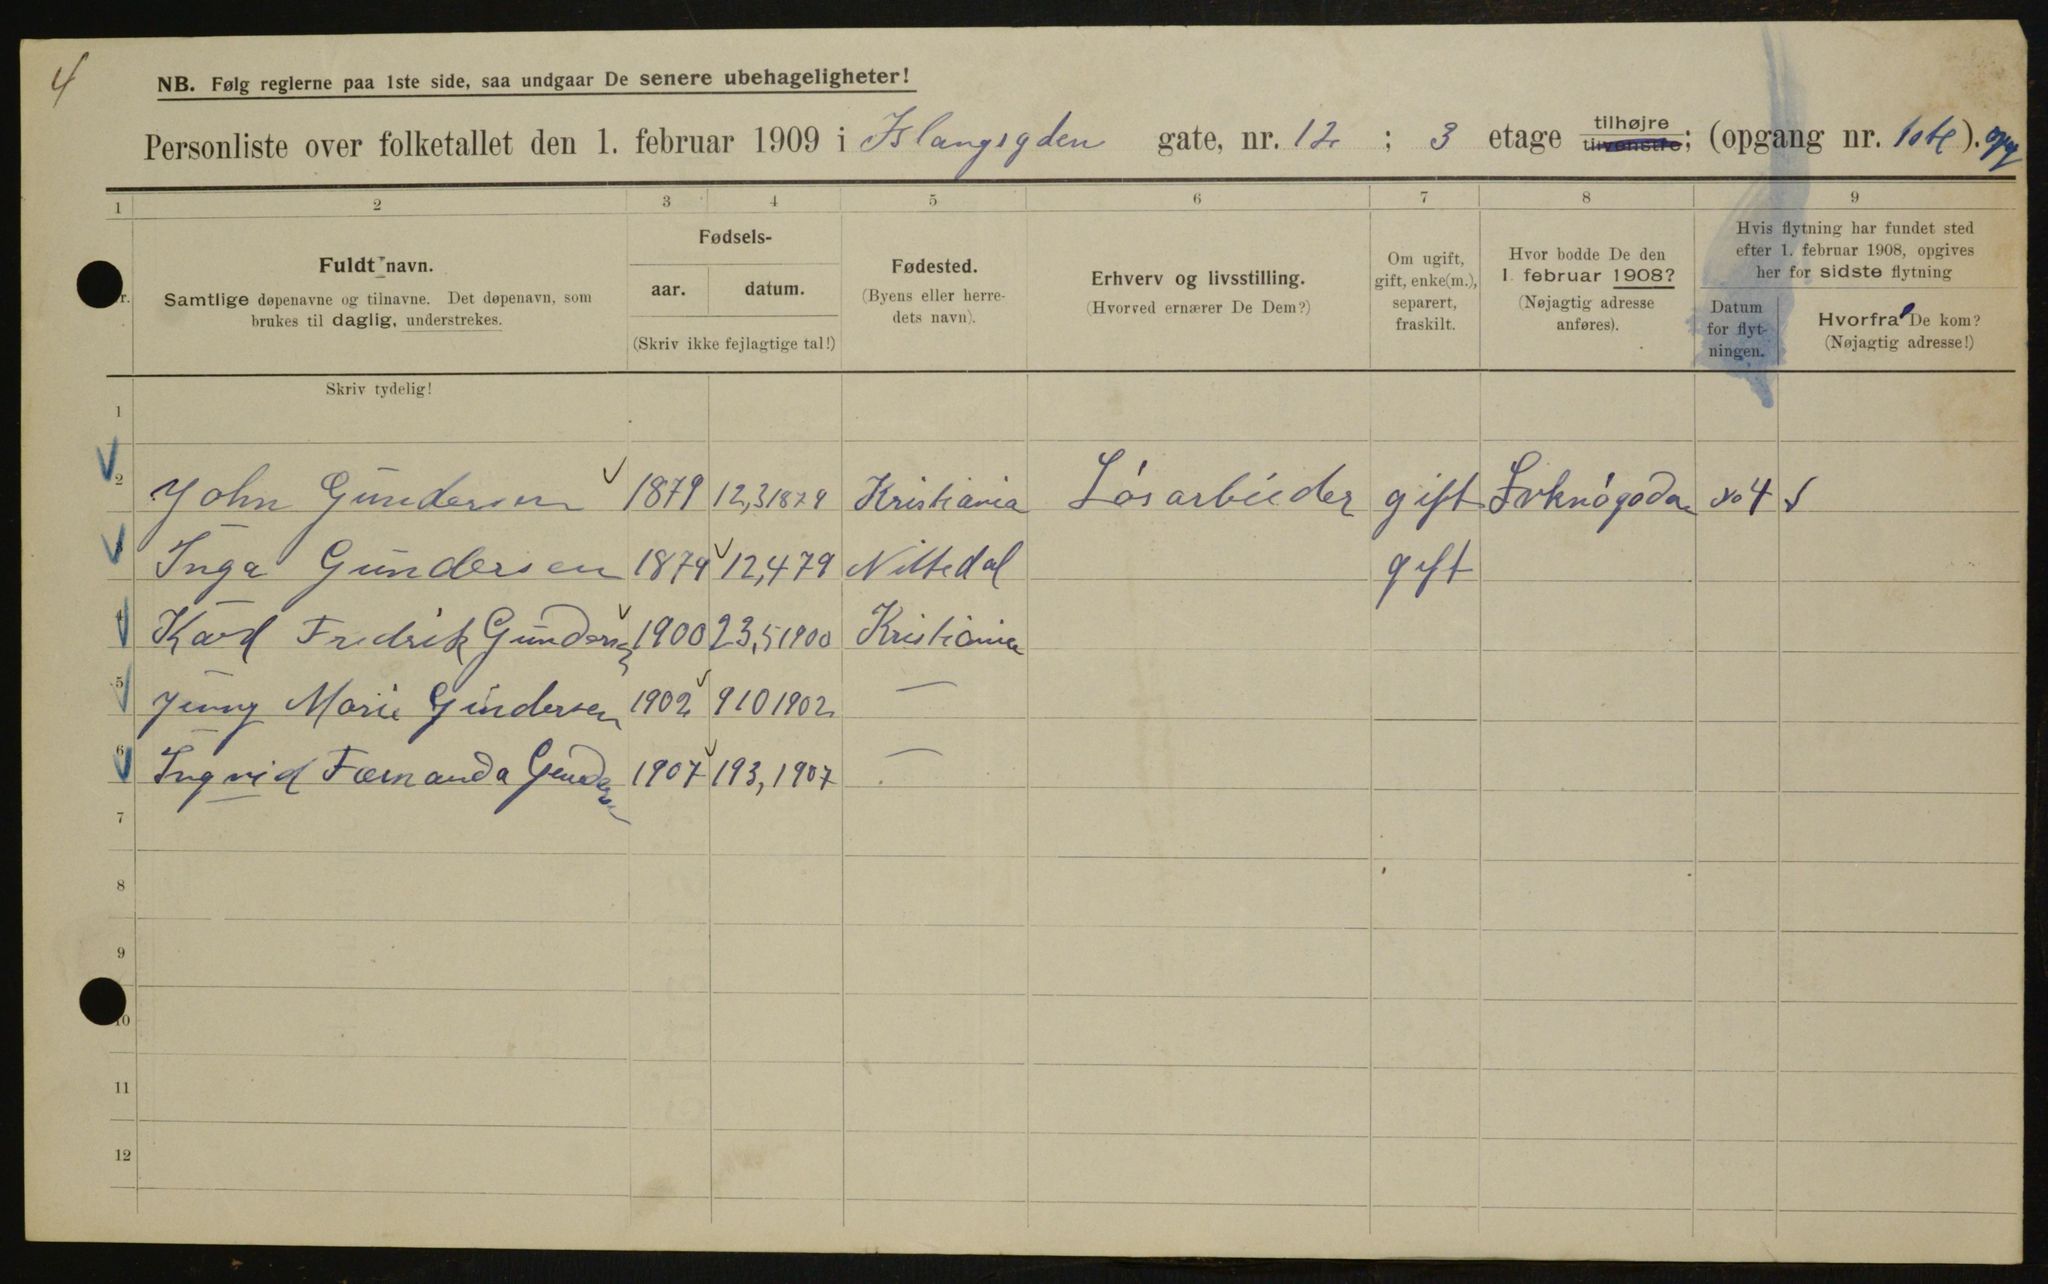 4
NB. Følg reglerne paa 1ste side, saa undgaar De senere ubehageligheter!
Personliste over folketallet den 1. februar 1909 i Islangsgden gate, nr. 12 ; 3 etage tilhøjre tilvenstre; (opgang nr. 1ste). opg
1 2 3 4 5 6 7 8 9
Fuldt navn.
Samtlige døpenavne og tilnavne. Det døpenavn, som
brukes til daglig, understrekes.
Fødsels-
aar. datum.
(Skriv ikke fejlagtige tal!)
Fødested.
(Byens eller herre-
dets navn).
Erhverv og livsstilling.
(Hvorved ernærer De Dem?)
Om ugift,
gift, enke(m.),
separert,
fraskilt.
Hvor bodde De den
1. februar 1908?
(Nøjagtig adresse
anføres).
Hvis flytning har fundet sted
efter 1. februar 1908, opgives
her for sidste flytning
Datum
for flyt-
ningen.
Hvorfra De kom?
(Nøjagtig adresse!)
Skriv tydelig!
1
2 John Gundersen 1879 12,31879 Kristiania Løsarbeider gift No 4
3 Inga Gundersen 1879 12,479 Nittedal gift
4 Karl Fredrik Gundersen 1900 23,51900 Kristiania
5 Jenny Marie Gundersen 1902 9101902 —
6 Ingrid Fernanda Gundersen 1907 193,1907 —
7
8
9
10
11
12